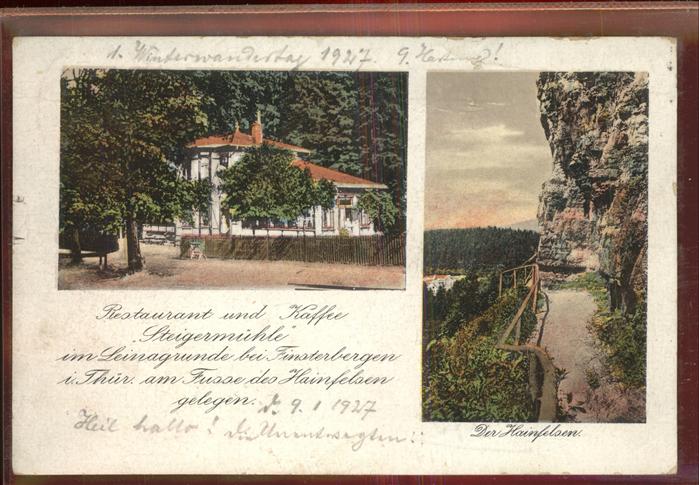 1. Winterwandertag 1927. 9. Hartung!
Restaurant und Kaffee
„Steigermühle“
im Leinagrunde bei Finsterbergen
i. Thür. am Fusse des Hainfelsen
gelegen.
d. 9. 1 1927
Heil hallo! die Unentwegten!!
Der Hainfelsen.